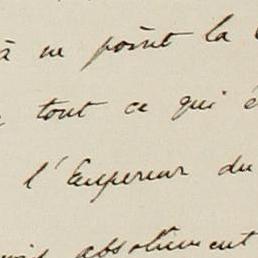 à ne point la
tout ce qui
l'Empereur du
absolument